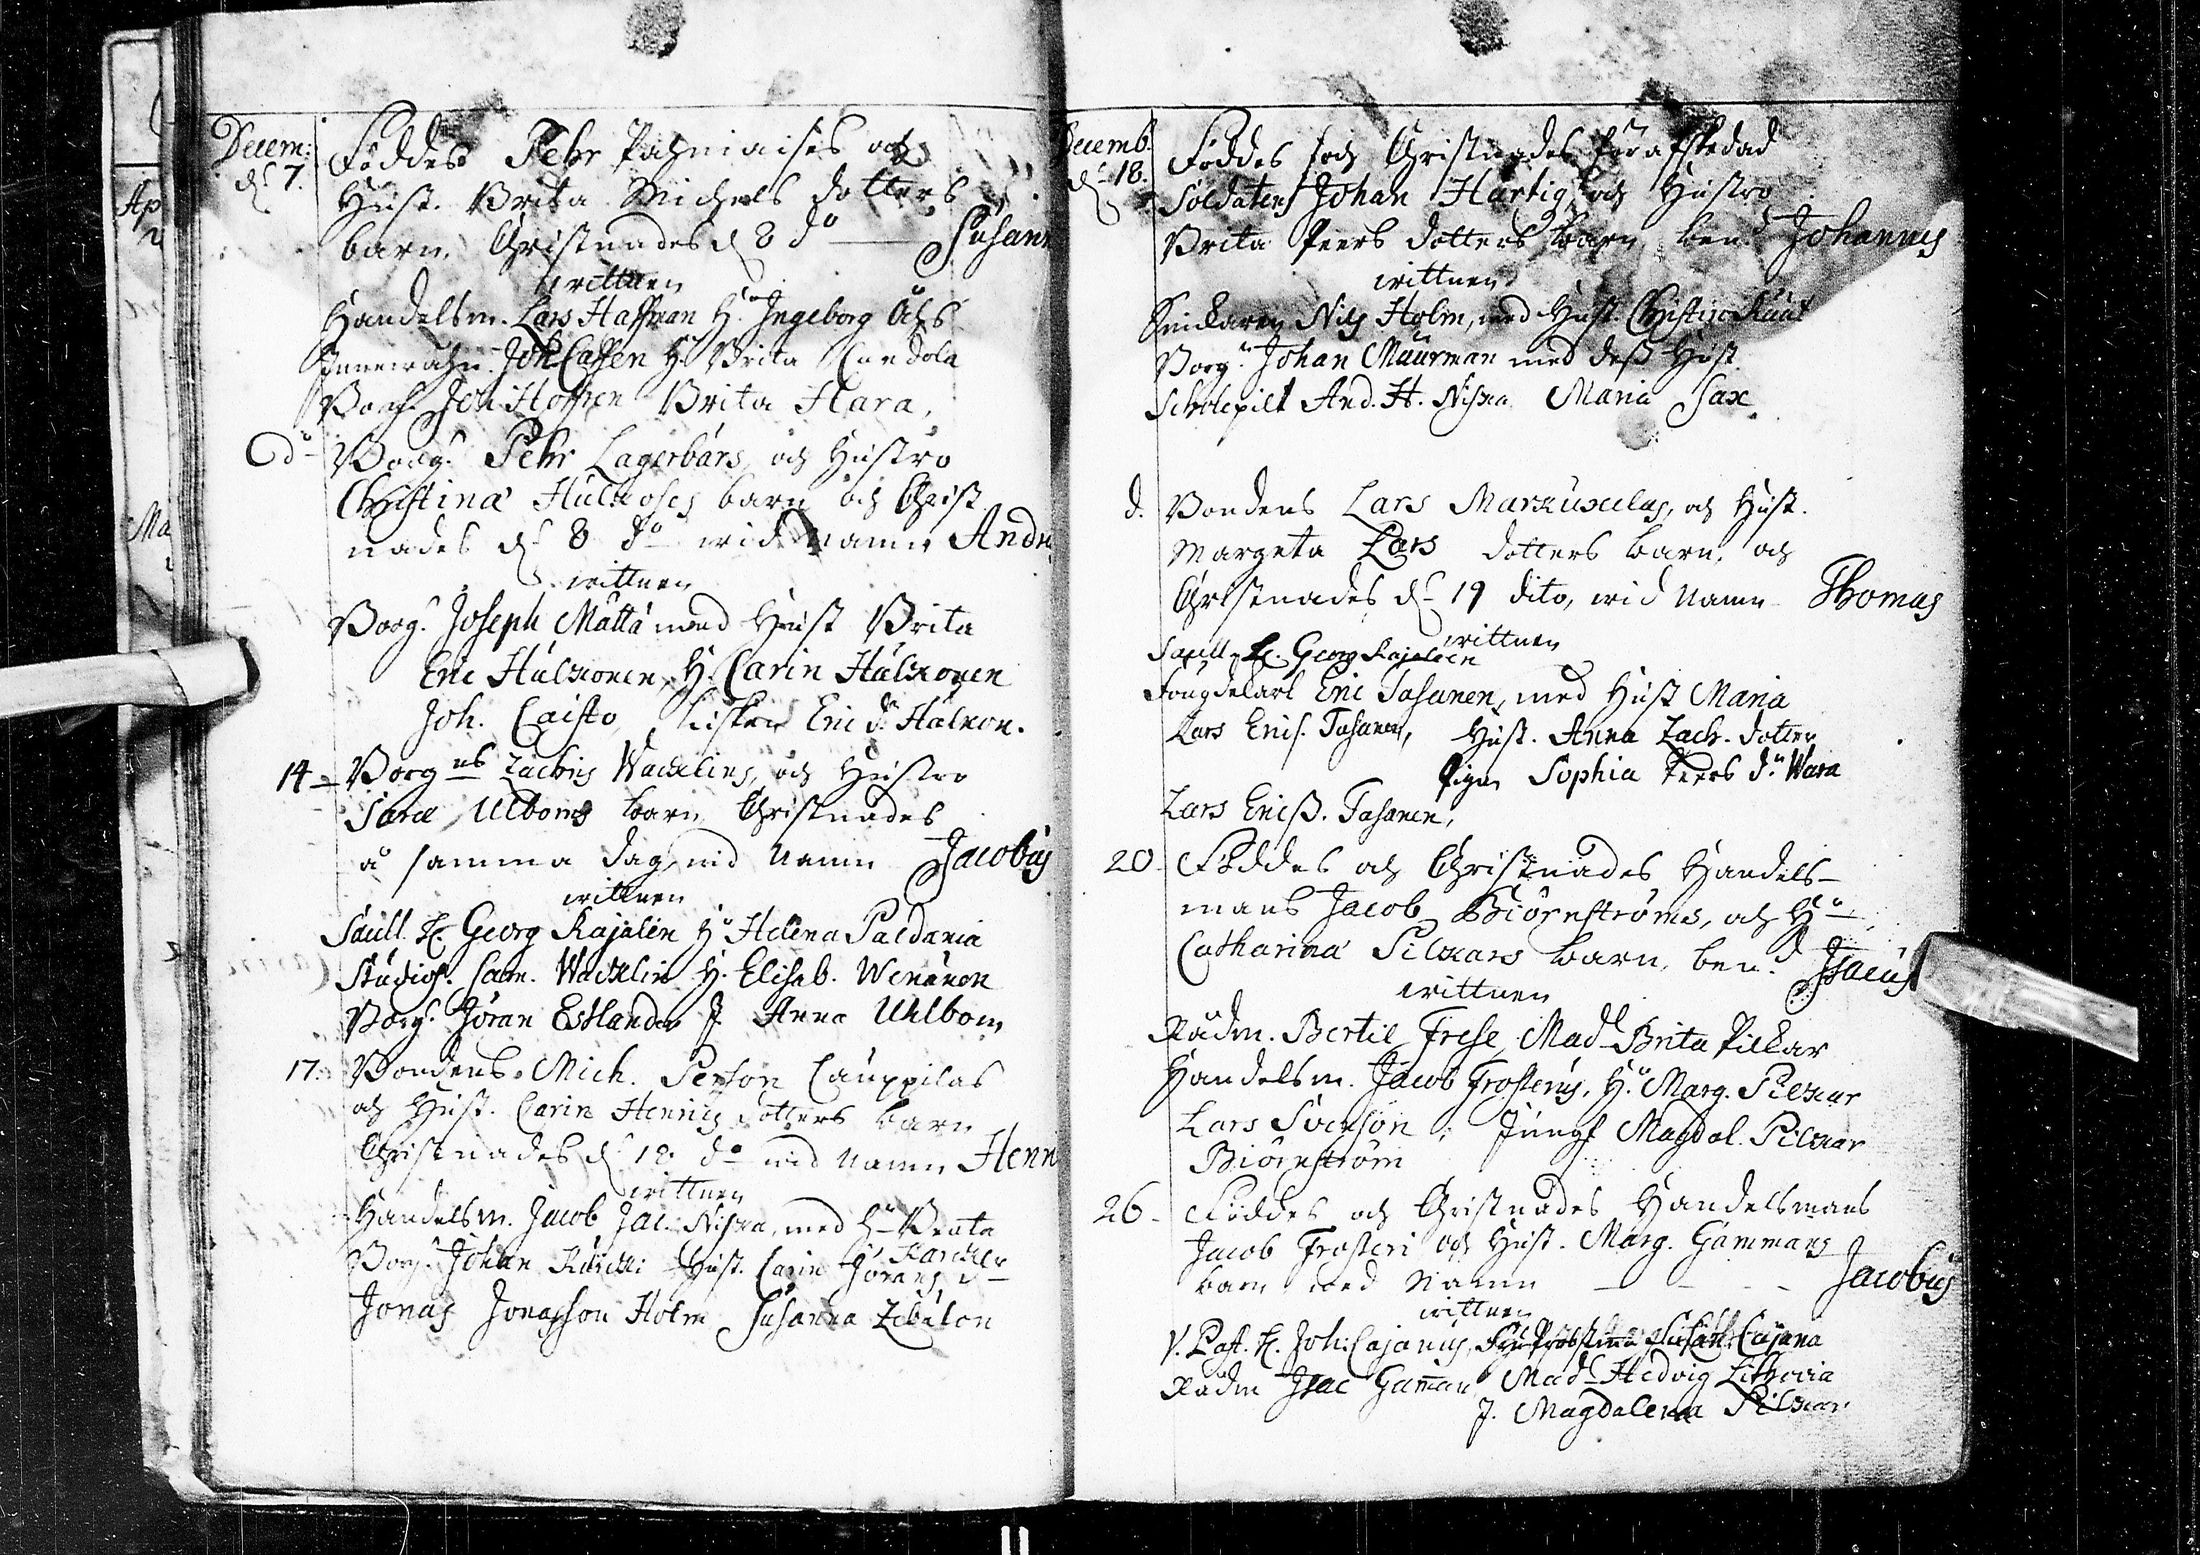 Decem:
d. 7.
Föddes Pehr Pahniaises och
Hust. Brita Michels dotters
barn, Christnades d 8 do Susann
wittnen
Handelsm. Lars Haffman H. Ingeborg Åhs
Joh. Caffen H. Brita
Borg. Joh Brita Hara,
do Borg. Pehr Lagerbärs, och Hustro
Christina Hulkoses barn och Christ
nades d. 8 do wid namn Andr
wittnen
Borg. Joseph Matta med Hust Brita
Eric Hulkonen, H. Carin Hulkonen
Joh. Caisto, Eric d. Hulkon.
14 Borgns Zachris Wacklins, och Hustro
Sara Ulboms barn Christnades
å samma dag, wid namn Jacobus
wittnen
Sacell. H. Georg Rajalin H Helena Paldania
Studios. Sam. Wacklin H. Elisab. Wenänen
Borg. Jöran Estlander J. Anna Uhlbom
17. Bondens Mich. Person Cauppilas
och Hust. Carin Henrics dotters barn
Christnades d. 18 do wid namn Henri
wittnen
Handelsm. Jacob Jac. Niska, med H. Beata
Karcker
Borg. Johan Hust. Carin Jörans dr
Jonas Jonasson Holm Susanna Zebulon
Decemb.
d. 18.
Föddes och Christnades för afskedad
Soldatens Johan Hartig, och Hustro
Brita Peers dotters barn bend Johannes
wittnen
Snickaren Nils Holm, med Hust. Christin Kuut
Borg. Johan Muurman med dess Hust.
Scholepilt And. H. Niska Maria Sax
d. Bondens Lars Markuxelas, och Hust.
Margeta Lars dotters barn, och
Christnades d. 19 dito, wid namn Thomas
wittnen
Sacell. H. Georg Rajalin
Eric Tasanen, med Hust Maria
Lars Erics. Tasanen, Hust. Anna Zach. dotter
Pigan Sophia Peers dr Wara
Lars Ericss. Tasanen,
20. Föddes och Christnades Handels-
mans Jacob Biörnströms, och H
Catharina Pilkars barn, bend Isacus
wittnen
Rådm. Bertil Frese, Mad. Brita Pilkar
Handelsm. Jacob Frosterus, H. Marg. Pilkar
Lars Svenson Jungf Magdal. Pilkar
Biörnström
26. Föddes och Christnades Handelsmans
Jacob Frosteri och Hust. Marg. Gammans
barn med Namn Jacobus
wittnen
V. Past. H. Joh: Cajanus, Fru Probstinnan Cajana
Rådm Isac Gam̄an, Mad. Hedvig Lithovia
J. Magdalena Pilkar